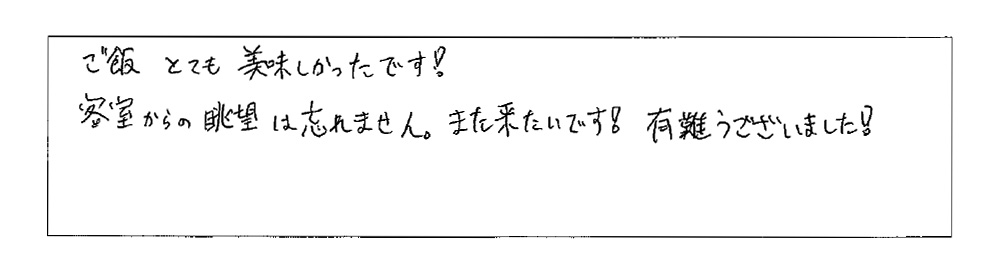 ご飯 とても 美味しかったです!
客室からの眺望は忘れません。また来たいです! 有難うございました!